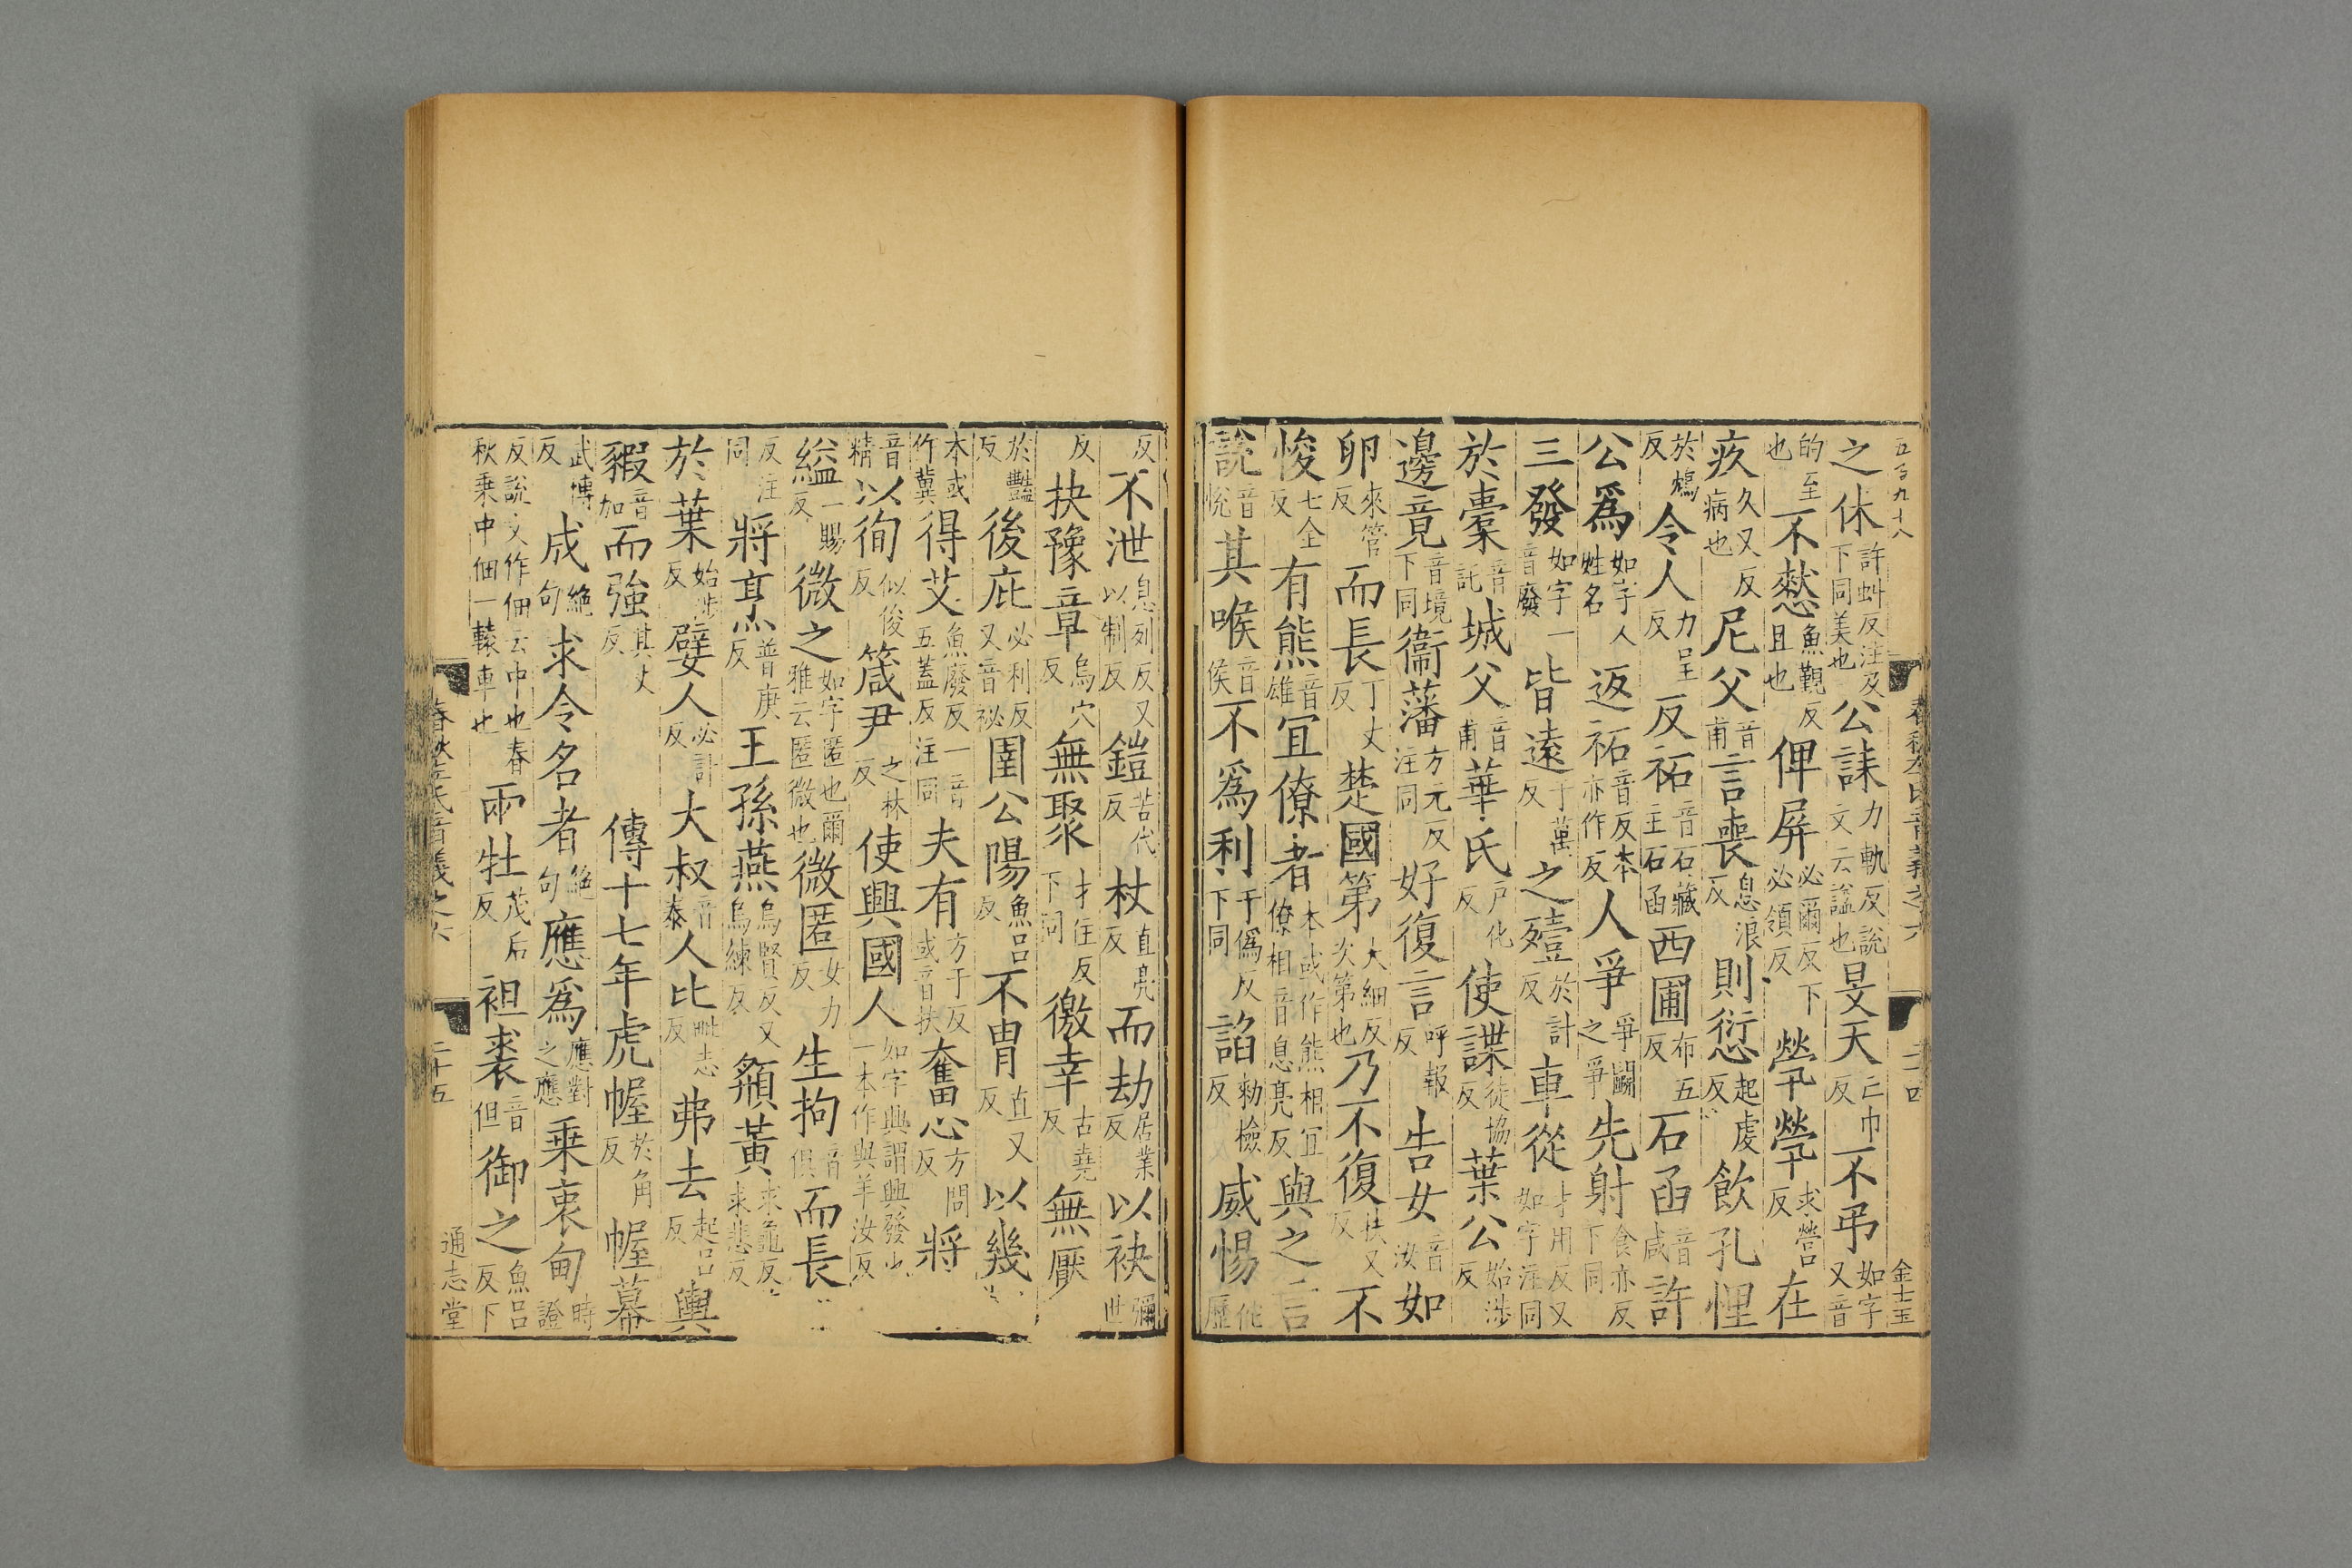 之休許虯反注及下同美也公誄力軌反説文云謚也旻天亡巾反不弔如字又音
的至也不憖魚覲反且也俾屏必爾反下必領反煢煢求營反在
疚久又反病也尼父音甫言喪息浪反則愆起虔反飲孔悝
於鴆反令人力呈反反祏音石藏主石函西圃布五反石函音咸許
公爲如字人姓名返祏音反本亦作反人爭爭鬭之爭先射食亦反下同
三發如字一音廢皆遠于萬反之殪於計反車從才用反又如字注同
於橐音託城父音甫華氏戶化反使諜徒協反葉公始涉反
邊竟音境下同衞藩方元反注同好復言呼報反告女音汝如
卵來管反而長丁丈反楚國第大細反次第也乃不復扶又反不
悛七全反有熊音雄宜僚者本或作熊相宜僚相音息亮反與之言
說音悅其喉音侯不爲利于僞反下同諂勑檢反威惕佗歷
五百九十八 春秋左氏音義之六 二十四 金士玉
反不泄息列反又以制反鎧苦代反杖直亮反而劫居業反以袂彌世
反抉豫章烏穴反無聚才住反下同徼幸古堯反無厭
於豔反後庇必利反又音祕圉公陽魚呂反不冑直又反以幾
本或作冀得艾魚廢反一音五蓋反注同夫有方于反或音扶奮心方問反將
音精以徇似俊反箴尹之林反使興國人如字興謂興發也一本作與羊汝反
縊一賜反微之如字匿也爾雅云匿微也微匿女力反生拘音俱而長
反注同將烹普庚反王孫燕烏賢反又烏練反頯黃求龜反求悲反
於葉始涉反嬖人必計反大叔音泰人比毗志反弗去起呂反輿
豭音加而強其丈反 傳十七年虎幄於角反幄幕
武博反成絕句求令名者絕句應爲應對之應乘衷甸時證
反說文作佃云中也春秋乘中佃一轅車也兩牡茂后反袒裘音但御之魚呂反下
春秋左氏音義之六 二十五 通志堂